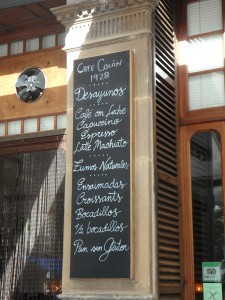 CAFE COLÓN
1928
Desayunos
Café con Leche
Capuccino
Espresso
Latte Machiato
Zumos Naturales
Ensaimadas
Croissants
Bocadillos
½ bocadillos
Pan sin Gluten